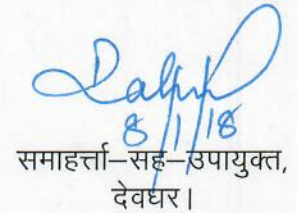 8/1/18
समाहर्त्ता–सह–उपायुक्त,
देवघर।